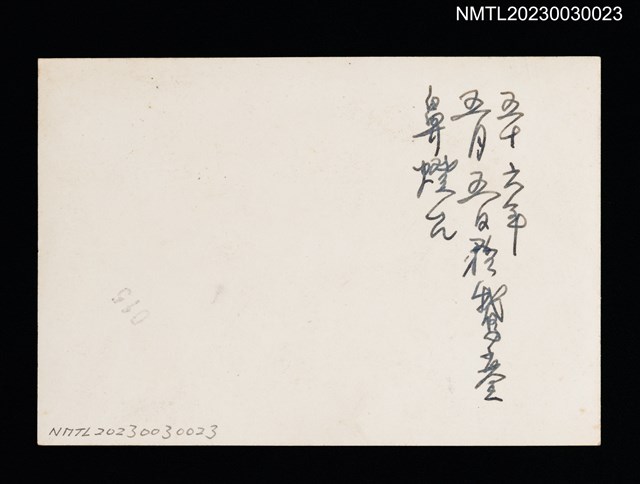 NMTL20230030023
五十六年
五月五日於鵝鑾
鼻燈台
015
NMTL20230030023